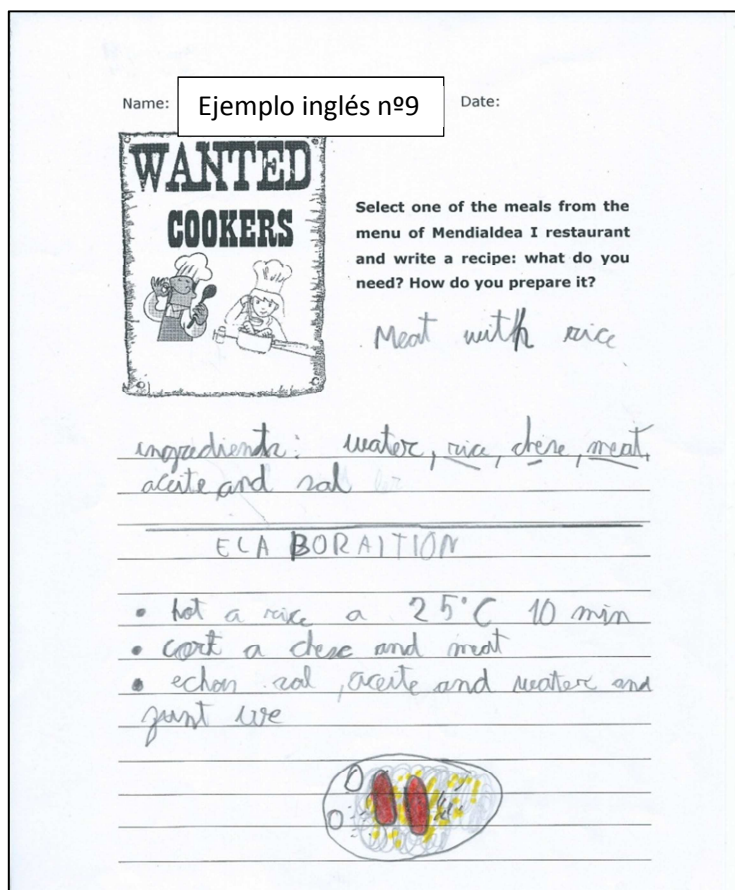 Name: Ejemplo inglés nº9 Date:
WANTED
COOKERS
Select one of the meals from the
menu of Mendialdea I restaurant
and write a recipe: what do you
need? How do you prepare it?
Meat with rice
ingredients: water, rice, chese, meat,
aceite and sal
ELABORAITION
• hot a rice a 25°C 10 min
• cort a chese and meat
• echan sal, aceite and water and